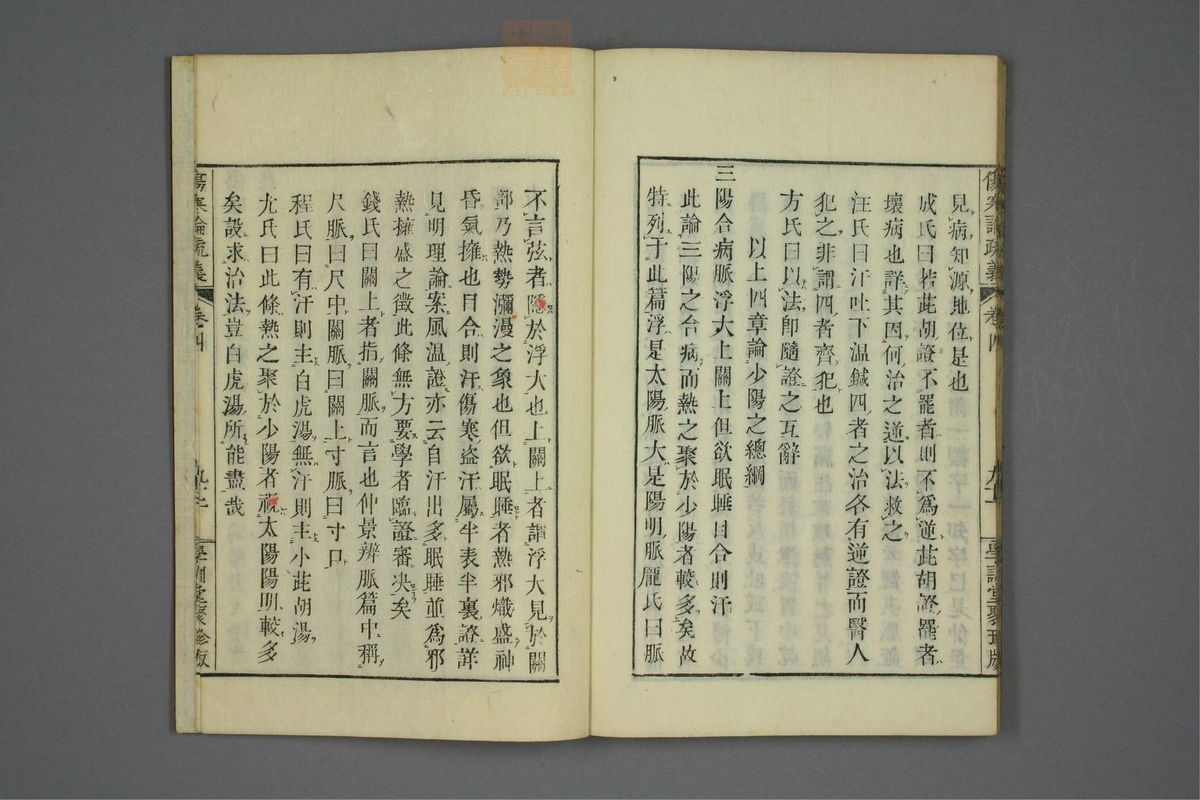 傷寒論疏義
卷四
學訓堂聚珍版
見病知源地位是也
成氏曰若茈胡證不罷者則不爲逆茈胡證罷者
壞病也詳其因何治之逆以法救之
汪氏曰汗吐下温鍼四者之治各有逆證而醫人
犯之非謂四者齊犯也
方氏曰以法卽隨證之互辭
以上四章論少陽之總綱
三陽合病脈浮大上關上但欲眠睡目合則汗
此論三陽之合病而熱之聚於少陽者較多矣故
特列于此篇浮是太陽脈大是陽明脈龐氏曰脈
不言弦者隱於浮大也上關上者謂浮大見於關
部乃熱勢瀰漫之象也但欲眠睡者熱邪熾盛神
昏氣擁也目合則汗傷寒盜汗屬半表半裏證詳
見明理論案風温證亦云自汗出多眠睡並爲邪
熱擁盛之徵此條無方要學者臨證審决矣
錢氏曰關上者指關脈而言也仲景辨脈篇中稱
尺脈曰尺中關脈曰關上寸脈曰寸口
程氏曰有汗則主白虎湯無汗則主小茈胡湯
尤氏曰此條熱之聚於少陽者視太陽陽明較多
矣設求治法豈白虎湯所能盡哉
傷寒論疏義
卷四
學訓堂聚珍版